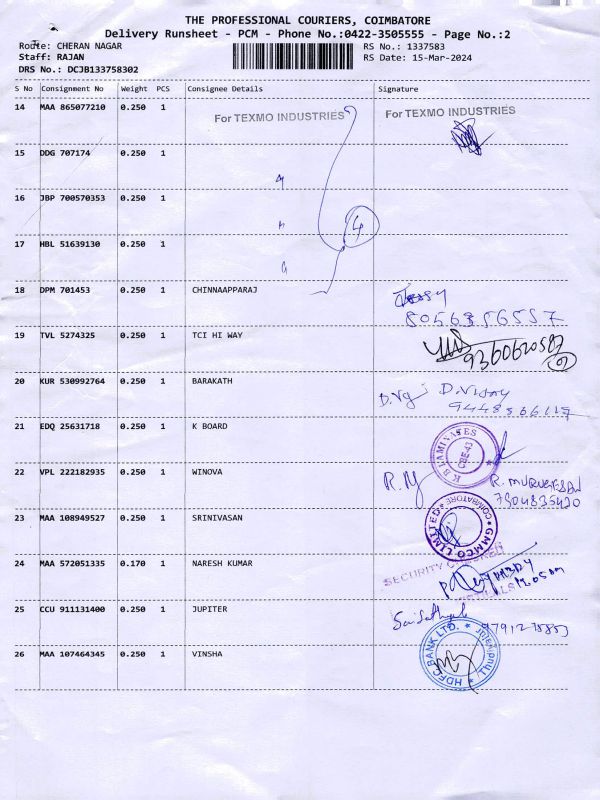 THE PROFESSIONAL COURIERS, COIMBATORE
Delivery Runsheet - PCM - Phone No.:0422-3505555 - Page No.:2
Route: CHERAN NAGAR
RS No.: 1337583
Staff: RAJAN
RS Date: 15-Mar-2024
DRS No.: DCJB133758302
S No Consignment No Weight PCS Consignee Details Signature
14 MAA 865077210 0.250 1 For TEXMO INDUSTRIES For TEXMO INDUSTRIES
15 DDG 707174 0.250 1
16 JBP 700570353 0.250 1
4
17 HBL 51639130 0.250 1
18 DPM 701453 0.250 1 CHINNAAPPARAJ
8056356557
19 TVL 5274325 0.250 1 TCI HI WAY
9360620587
20 KUR 530992764 0.250 1 BARAKATH
D. Vijay
21 EDQ 25631718 0.250 1 K BOARD
K.B. LAMINATES
CBE-43
22 VPL 222182935 0.250 1 WINOVA
R. MURUGESAN
7904835420
23 MAA 108949527 0.250 1 SRINIVASAN
GMMCO LIMITED
COIMBATORE
24 MAA 572051335 0.170 1 NARESH KUMAR
SECURITY
25 CCU 911131400 0.250 1 JUPITER
26 MAA 107464345 0.250 1 VINSHA
HDFC BANK LTD.
Thudiyalur